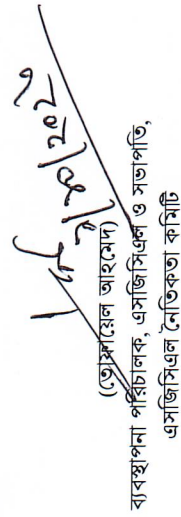 (তোফায়েল আহমেদ)
ব্যবস্থাপনা পরিচালক, এসজিসিএল ও সভাপতি,
এসজিসিএল নৈতিকতা কমিটি